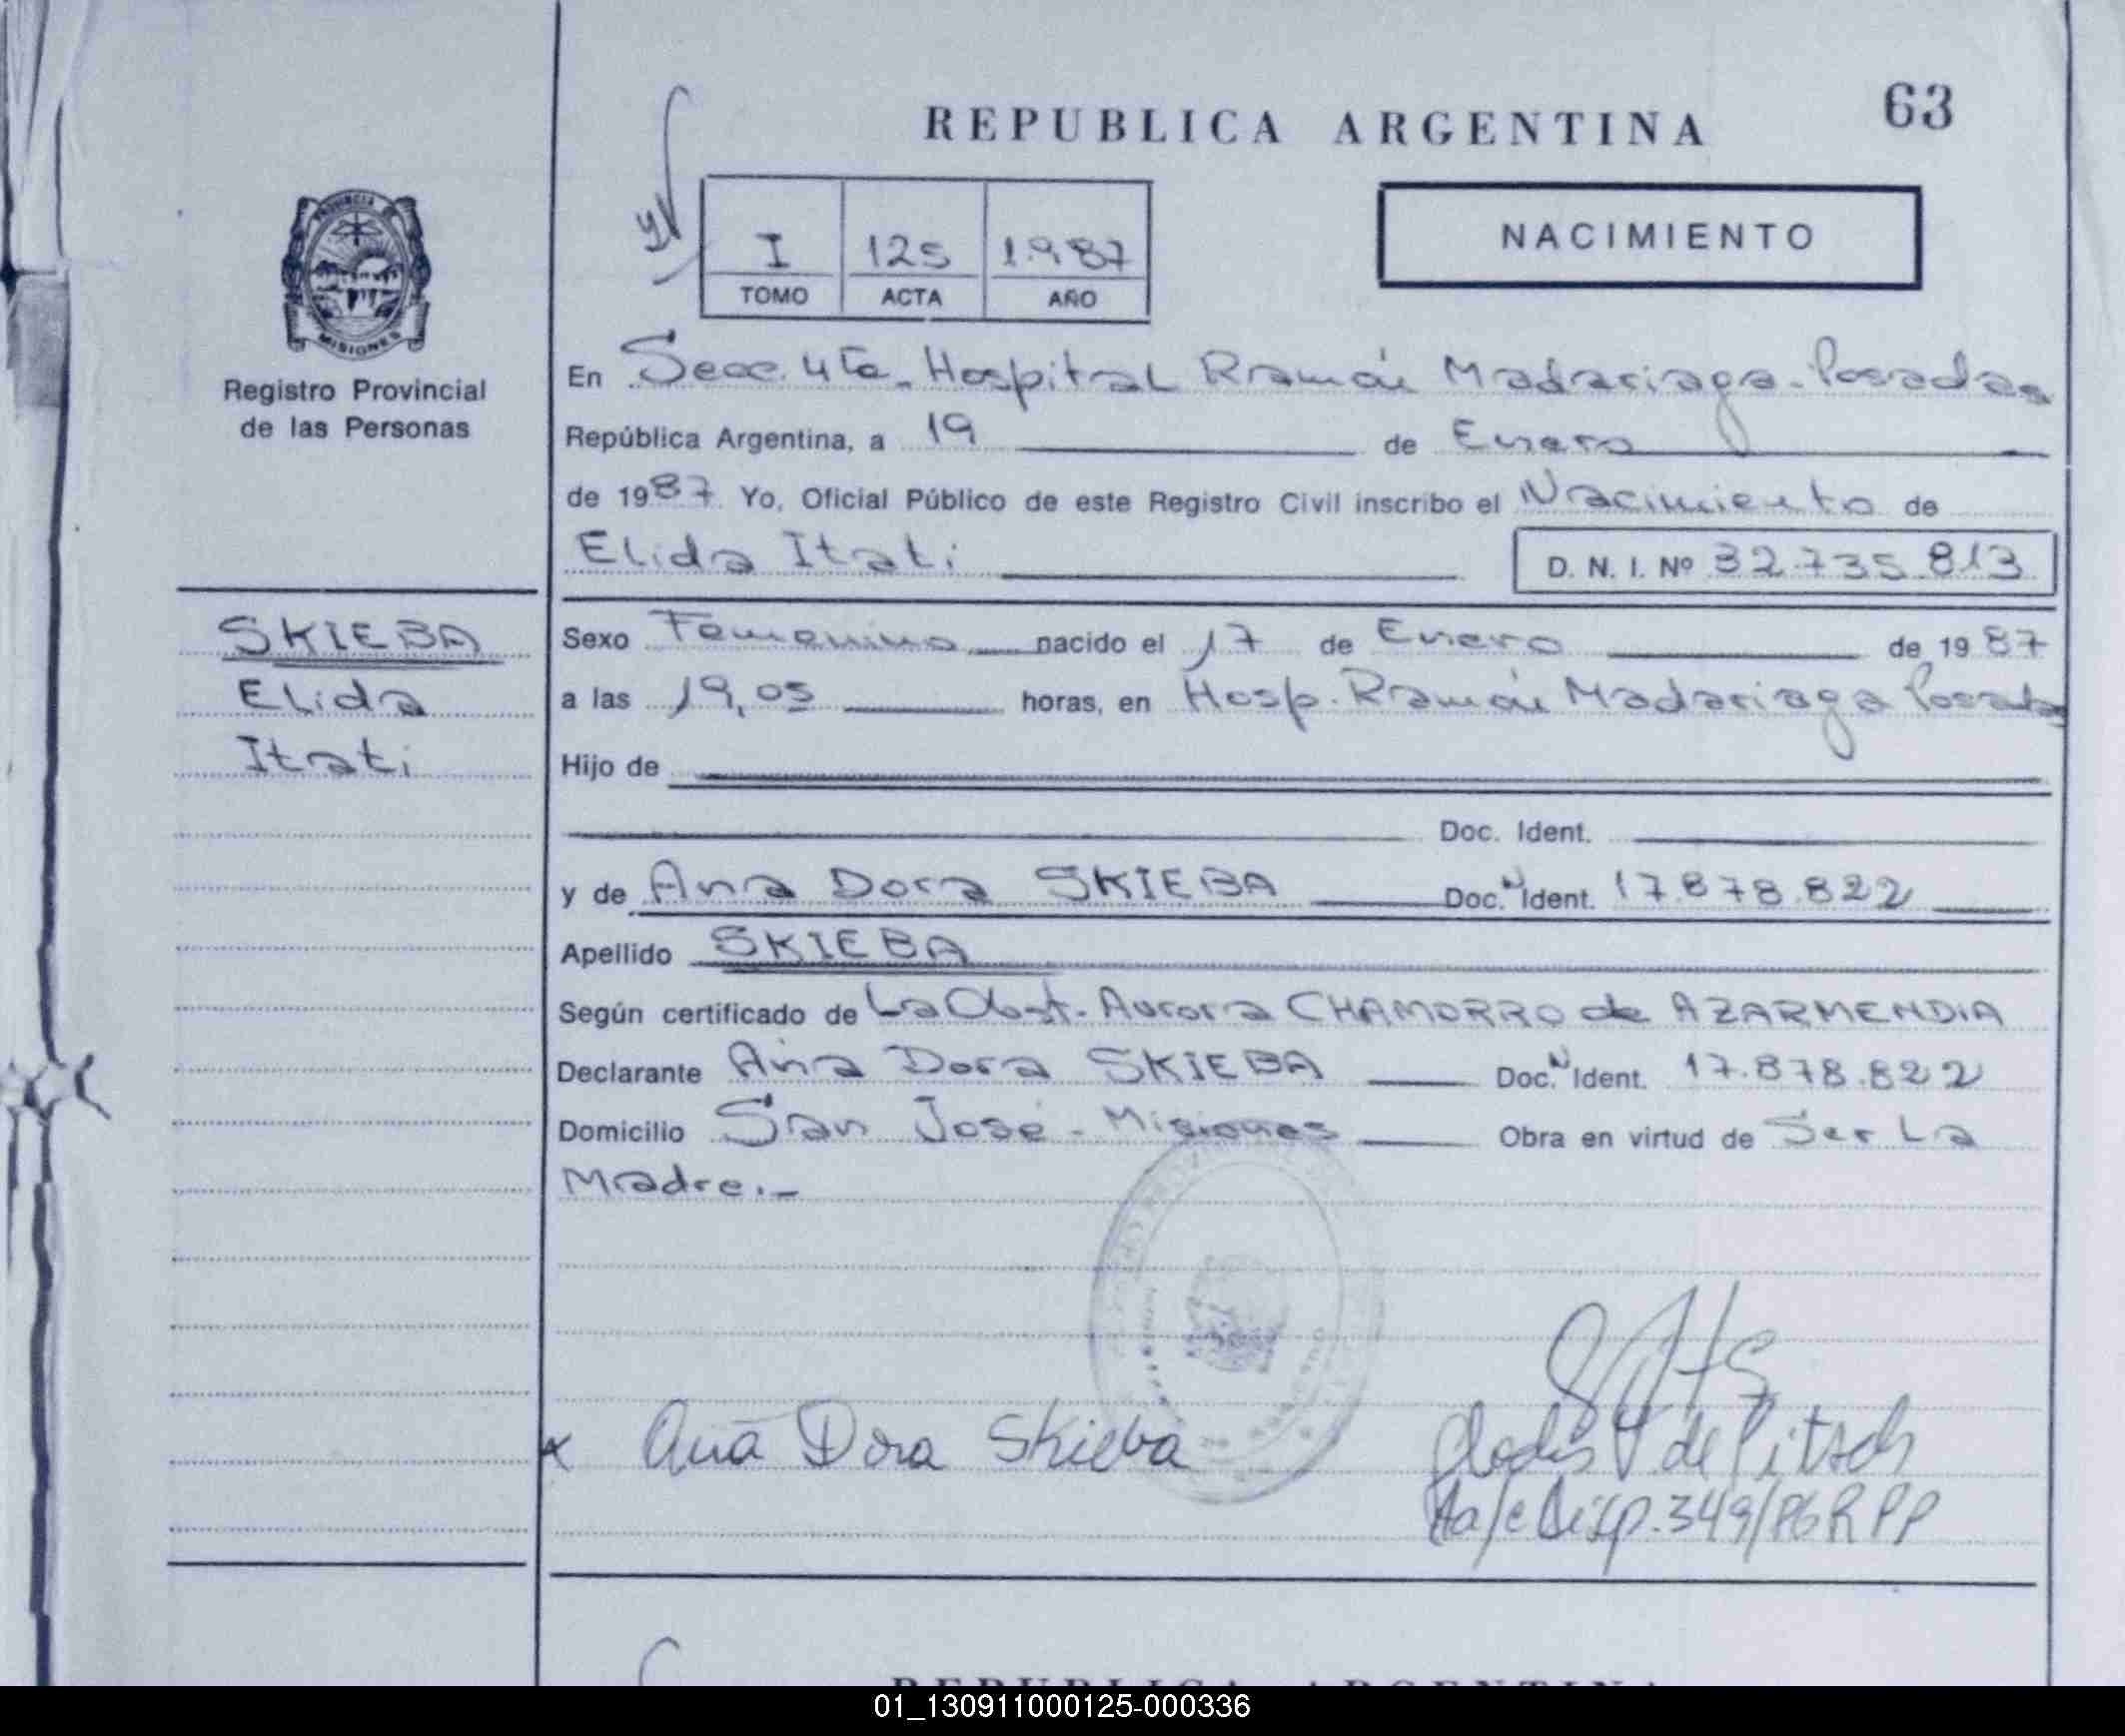 63
REPUBLICA ARGENTINA
I 125 1.987
TOMO ACTA AÑO
NACIMIENTO
PROVINCIA DE
MISIONES
Registro Provincial
de las Personas
En Secc. 4ta. Hospital Ramón Madariaga - Posadas
República Argentina, a 19 de Enero
de 1987. Yo, Oficial Público de este Registro Civil inscribo el Nacimiento de
Elida Itati D. N. I. Nº 32.735.813
SKIEBA
Elida
Itati
Sexo Femenino nacido el 17 de Enero de 1987
a las 19,05 horas, en Hosp. Ramón Madariaga Posadas
Hijo de
Doc. Ident.
y de Ana Dora SKIEBA Doc. N Ident. 17.878.822
Apellido SKIEBA
Según certificado de La Obst. Aurora CHAMORRO de AZARMENDIA
Declarante Ana Dora SKIEBA Doc. N Ident. 17.878.822
Domicilio San José - Misiones Obra en virtud de Ser La
Madre.-
x Ana Dora Skieba
de Pitsch
Disp. 349/86 RPP
REPUBLICA ARGENTINA
01_130911000125-000336